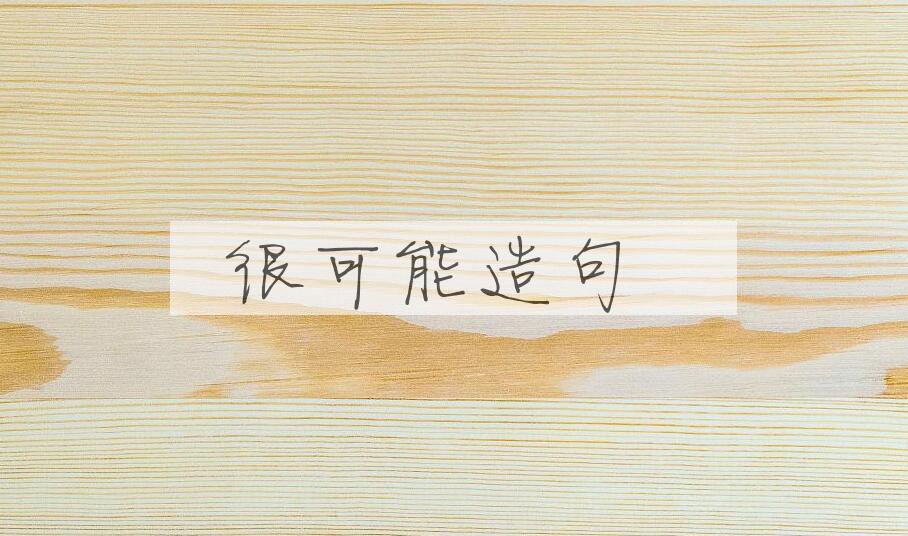 很可能造句